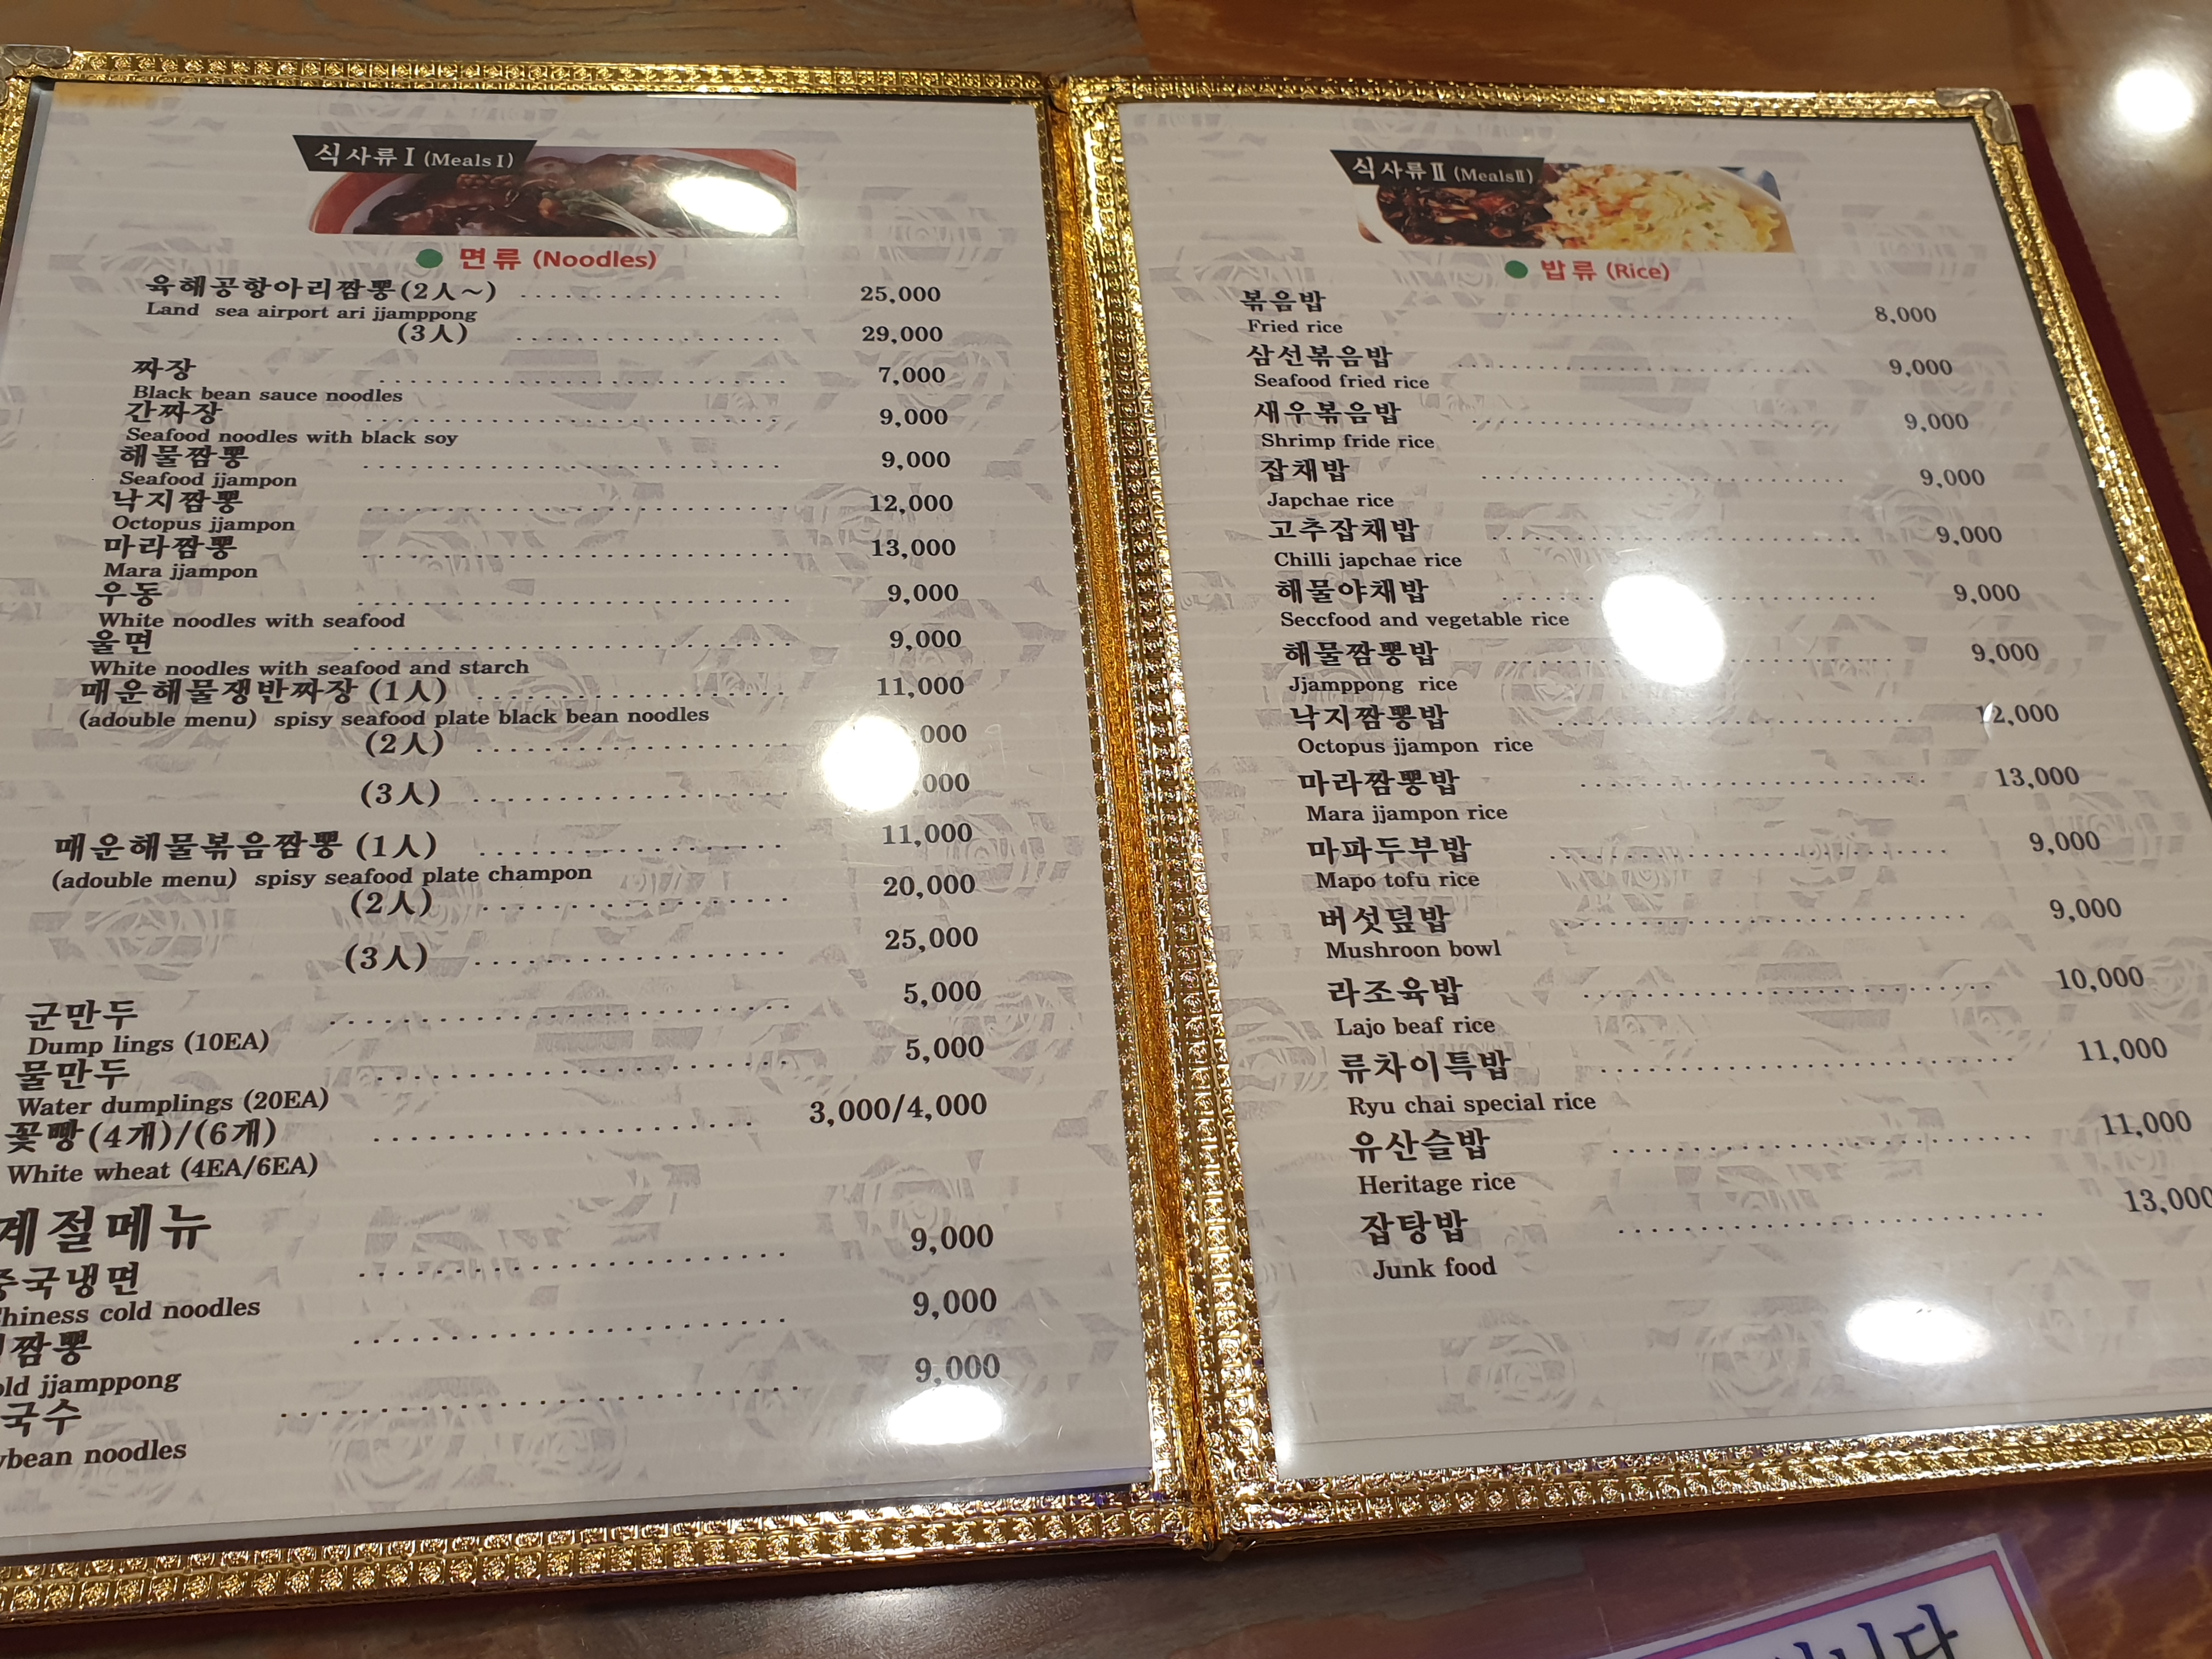 식사류 I (Meals I)
면류 (Noodles)
육해공항아리짬뽕(2人~) 25,000
Land sea airport ari jjamppong
(3人) 29,000
짜장 7,000
Black bean sauce noodles
간짜장 9,000
Seafood noodles with black soy
해물짬뽕 9,000
Seafood jjampon
낙지짬뽕 12,000
Octopus jjampon
마라짬뽕 13,000
Mara jjampon
우동 9,000
White noodles with seafood
울면 9,000
White noodles with seafood and starch
매운해물쟁반짜장 (1人) 11,000
(adouble menu) spisy seafood plate black bean noodles
(2人)
(3人)
매운해물볶음짬뽕 (1人) 11,000
(adouble menu) spisy seafood plate champon
(2人) 20,000
(3人) 25,000
군만두 5,000
Dump lings (10EA)
물만두 5,000
Water dumplings (20EA)
꽃빵(4개)/(6개) 3,000/4,000
White wheat (4EA/6EA)
계절메뉴
중국냉면 9,000
hiness cold noodles
짬뽕 9,000
old jjamppong
국수 9,000
ybean noodles
식사류 II (Meals II)
밥류 (Rice)
볶음밥 8,000
Fried rice
삼선볶음밥 9,000
Seafood fried rice
새우볶음밥 9,000
Shrimp fride rice
잡채밥 9,000
Japchae rice
고추잡채밥 9,000
Chilli japchae rice
해물야채밥 9,000
Seccfood and vegetable rice
해물짬뽕밥 9,000
Jjamppong rice
낙지짬뽕밥 12,000
Octopus jjampon rice
마라짬뽕밥 13,000
Mara jjampon rice
마파두부밥 9,000
Mapo tofu rice
버섯덮밥 9,000
Mushroon bowl
라조육밥 10,000
Lajo beaf rice
류차이특밥 11,000
Ryu chai special rice
유산슬밥 11,000
Heritage rice
잡탕밥 13,000
Junk food
니다